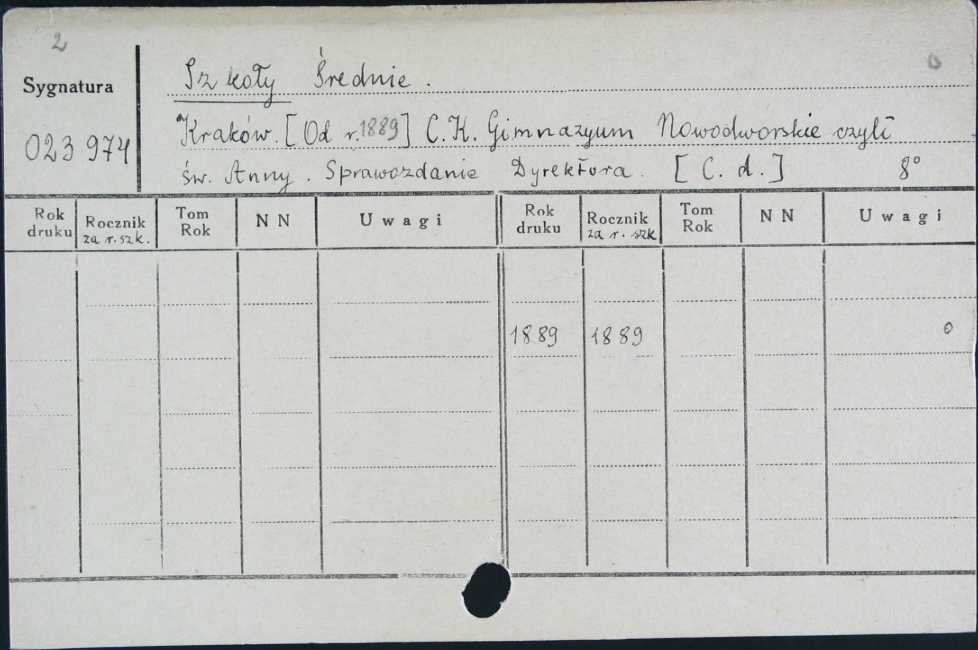 2
0
Sygnatura
Szkoły Średnie.
023 974
Kraków. [Od r. 1889] C.K. Gimnazyum Nowodworskie czyli
św. Anny. Sprawozdanie Dyrektora. [C. d.] 8°
Rok druku Rocznik za r. szk. Tom Rok NN Uwagi Rok druku Rocznik za r. szk Tom Rok NN Uwagi
1889 1889 0